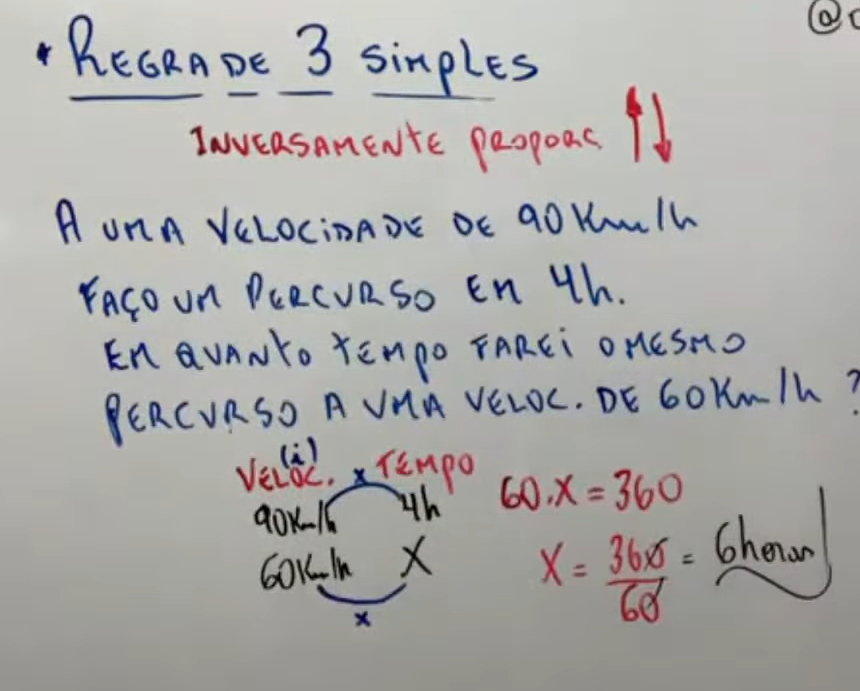 @
• REGRA DE 3 SIMPLES
INVERSAMENTE PROPORC. ↑↓
A UMA VELOCIDADE DE 90Km/h
FAÇO UM PERCURSO EM 4h.
EM QUANTO TEMPO FAREI O MESMO
PERCURSO A UMA VELOC. DE 60Km/h ?
(i)
VELOC. x TEMPO
90Km/h 4h
60Km/h X
x
60.X = 360
X = 360/60 = 6horas